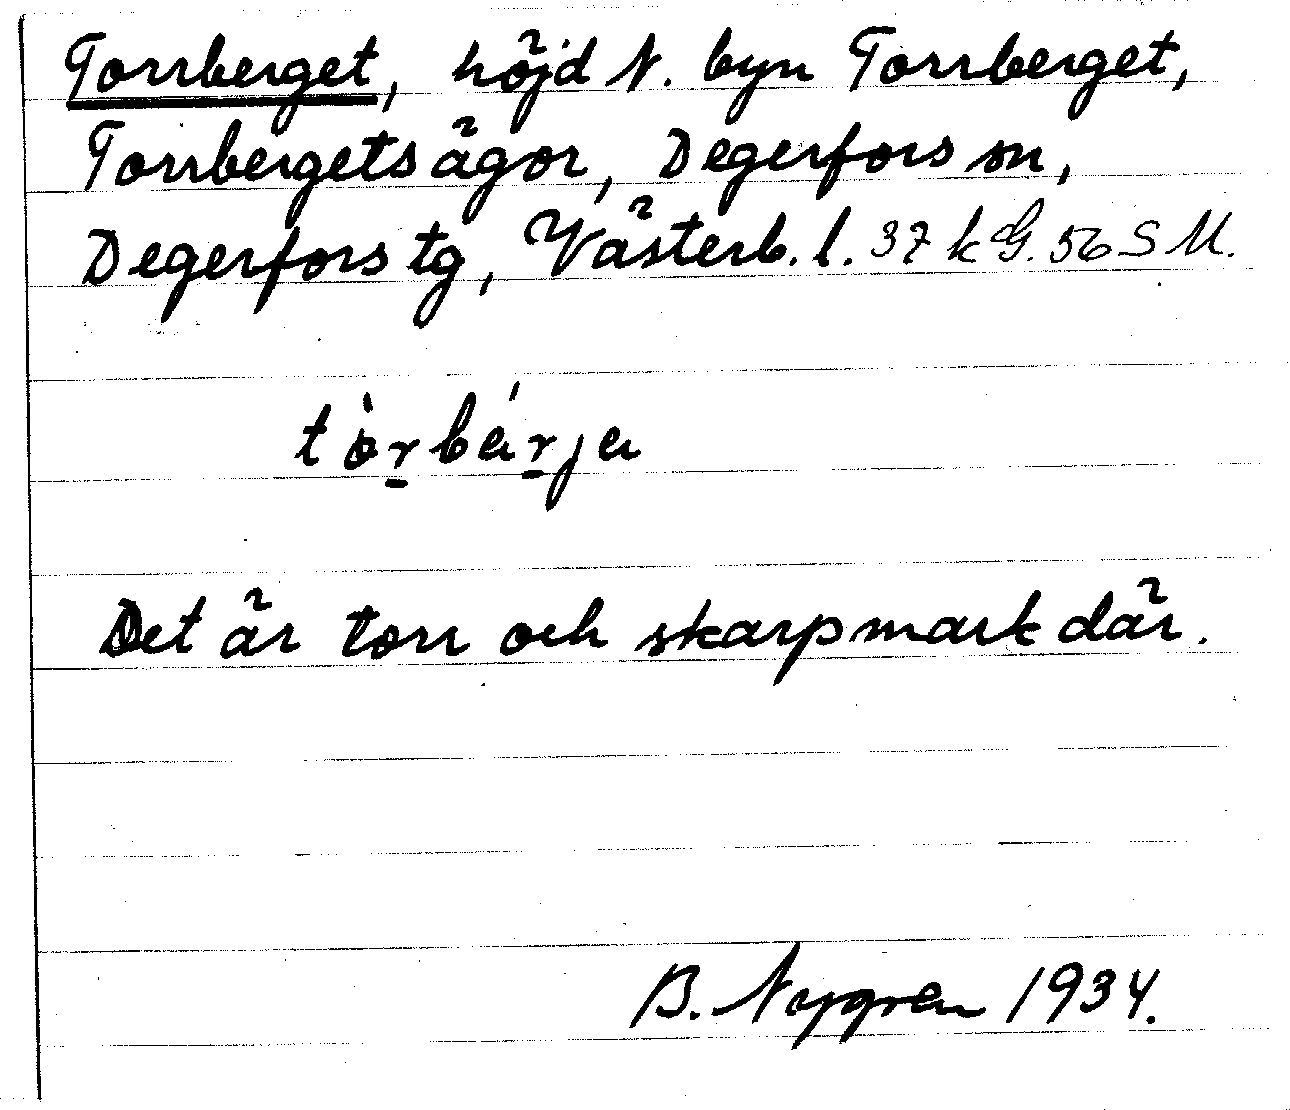 Torrberget, höjd N. byn Torrberget,
Torrbergets ägor, Degerfors sn,
Degerfors tg, Västerb. l. 37 k G. 56 S M.
tòr̲bár̲ja
Det är torr och skarpmark där.
B. Nygren 1934.